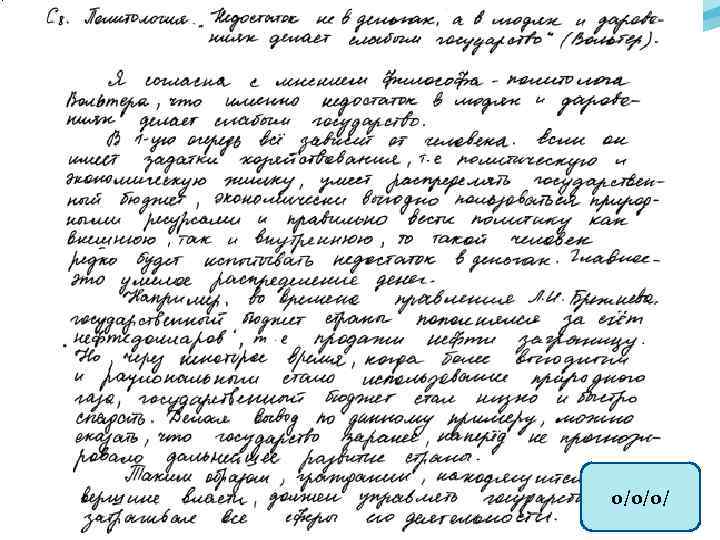 С8. Политология. „Недостаток не в деньгах, а в людях и дарова-
ниях делает слабым государство" (Вольтер).
Я согласна с мнением философа - политолога
Вольтера, что именно недостаток в людях и дарова-
ниях делает слабым государство.
В 1-ую очередь всё зависит от человека. Если он
имеет задатки хозяйствования, т.е политическую и
экономическую жилку, умеет распределять государствен-
ный бюджет, экономически выгодно пользоваться природ-
ными ресурсами и правильно вести политику как
внешнюю, так и внутреннюю, то такой человек
редко будет испытывать недостаток в деньгах. Главное-
это умелое распределение денег.
Например, во времена правления Л.И. Брежнева,
государственный бюджет страны пополнялся за счёт
"нефтедолларов", т.е продажи нефти заграницу.
Но через некоторое время, когда более выгодным
и рациональным стало использование природного
газа, государственный бюджет стал низко и быстро
спадать. Делая вывод по данному примеру, можно
сказать, что государство заранее, наперёд не прогнози-
ровало дальнейшее развитие страны.
Таким образом, гражданин, находящийся
вершине власти, должен управлять государст
затрагивая все сферы его деятельности.
0/0/0/